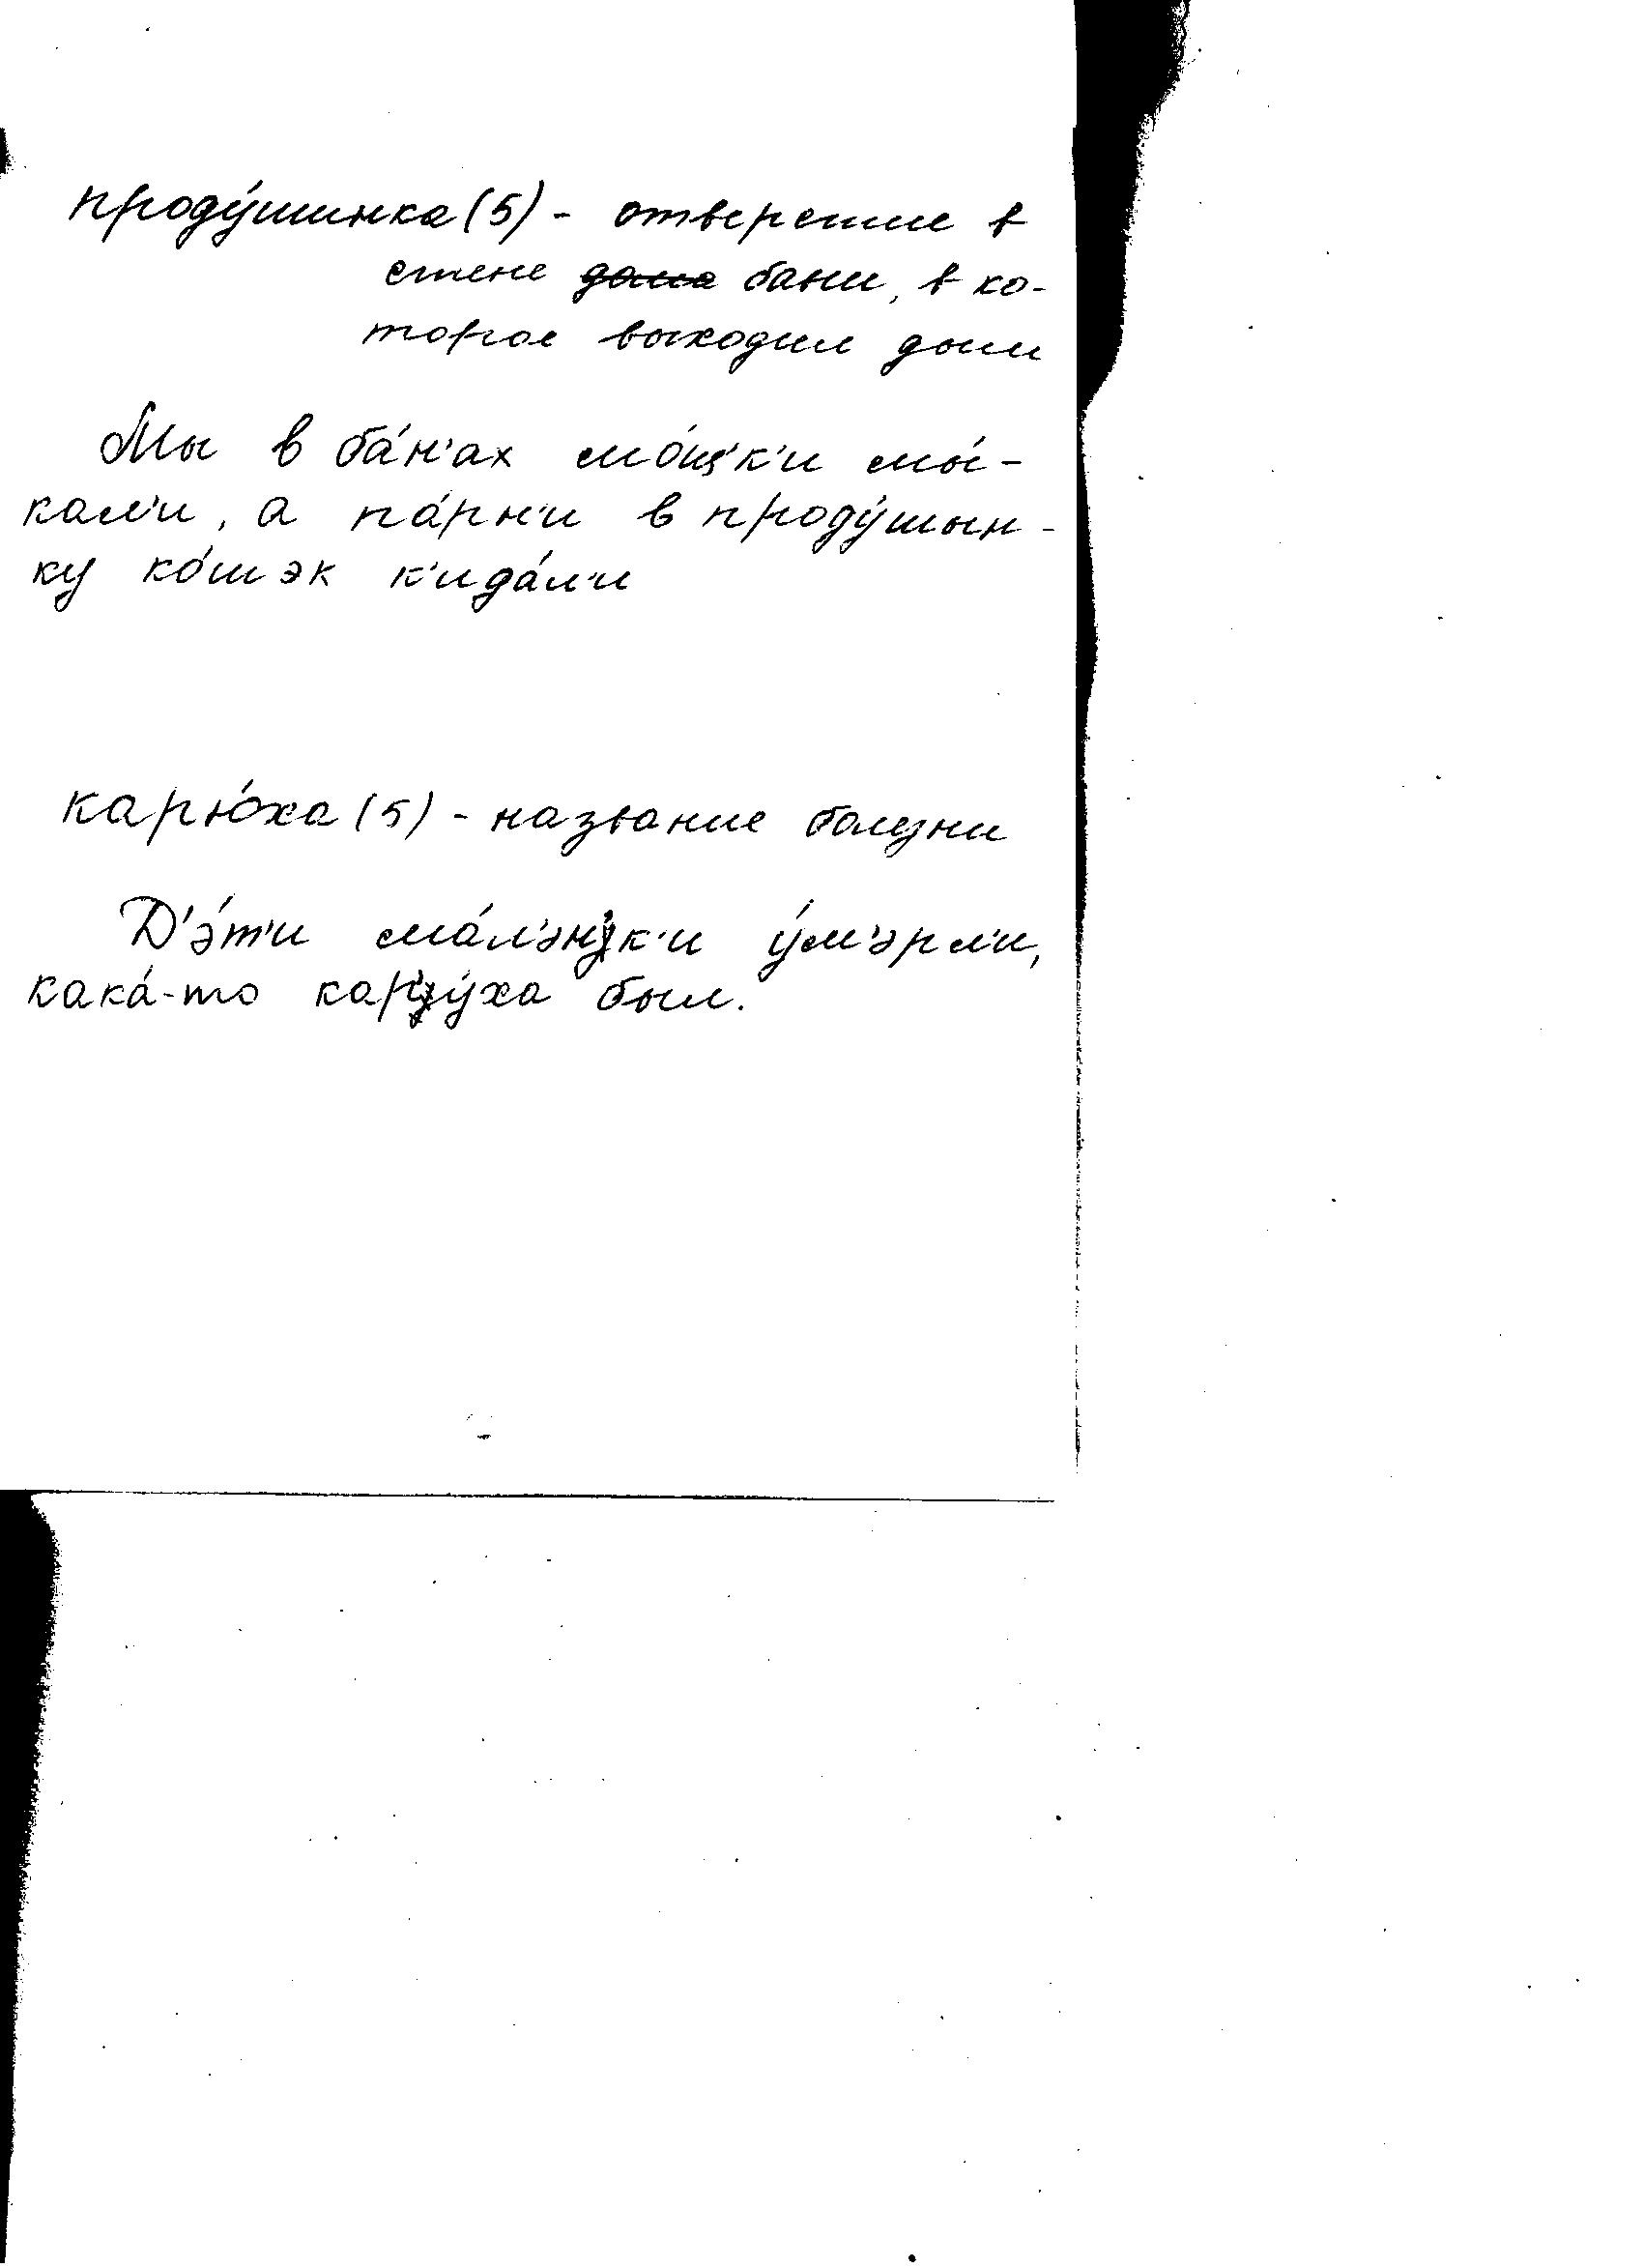 проду́шинка (5) - отверстие в
стене ~~дома~~ бани, в ко-
торое выходил дым
Мы в ба́н'ах мо́щ'к'и мы́-
кал'и, а па́рн'и в проду́шын-
ку ко́шэк к'ида́л'и
карю́ха (5) - название болезни
Д'э́т'и ма́л'эн'к'и у́м'эрл'и,
кака́-то кар'у́ха был.